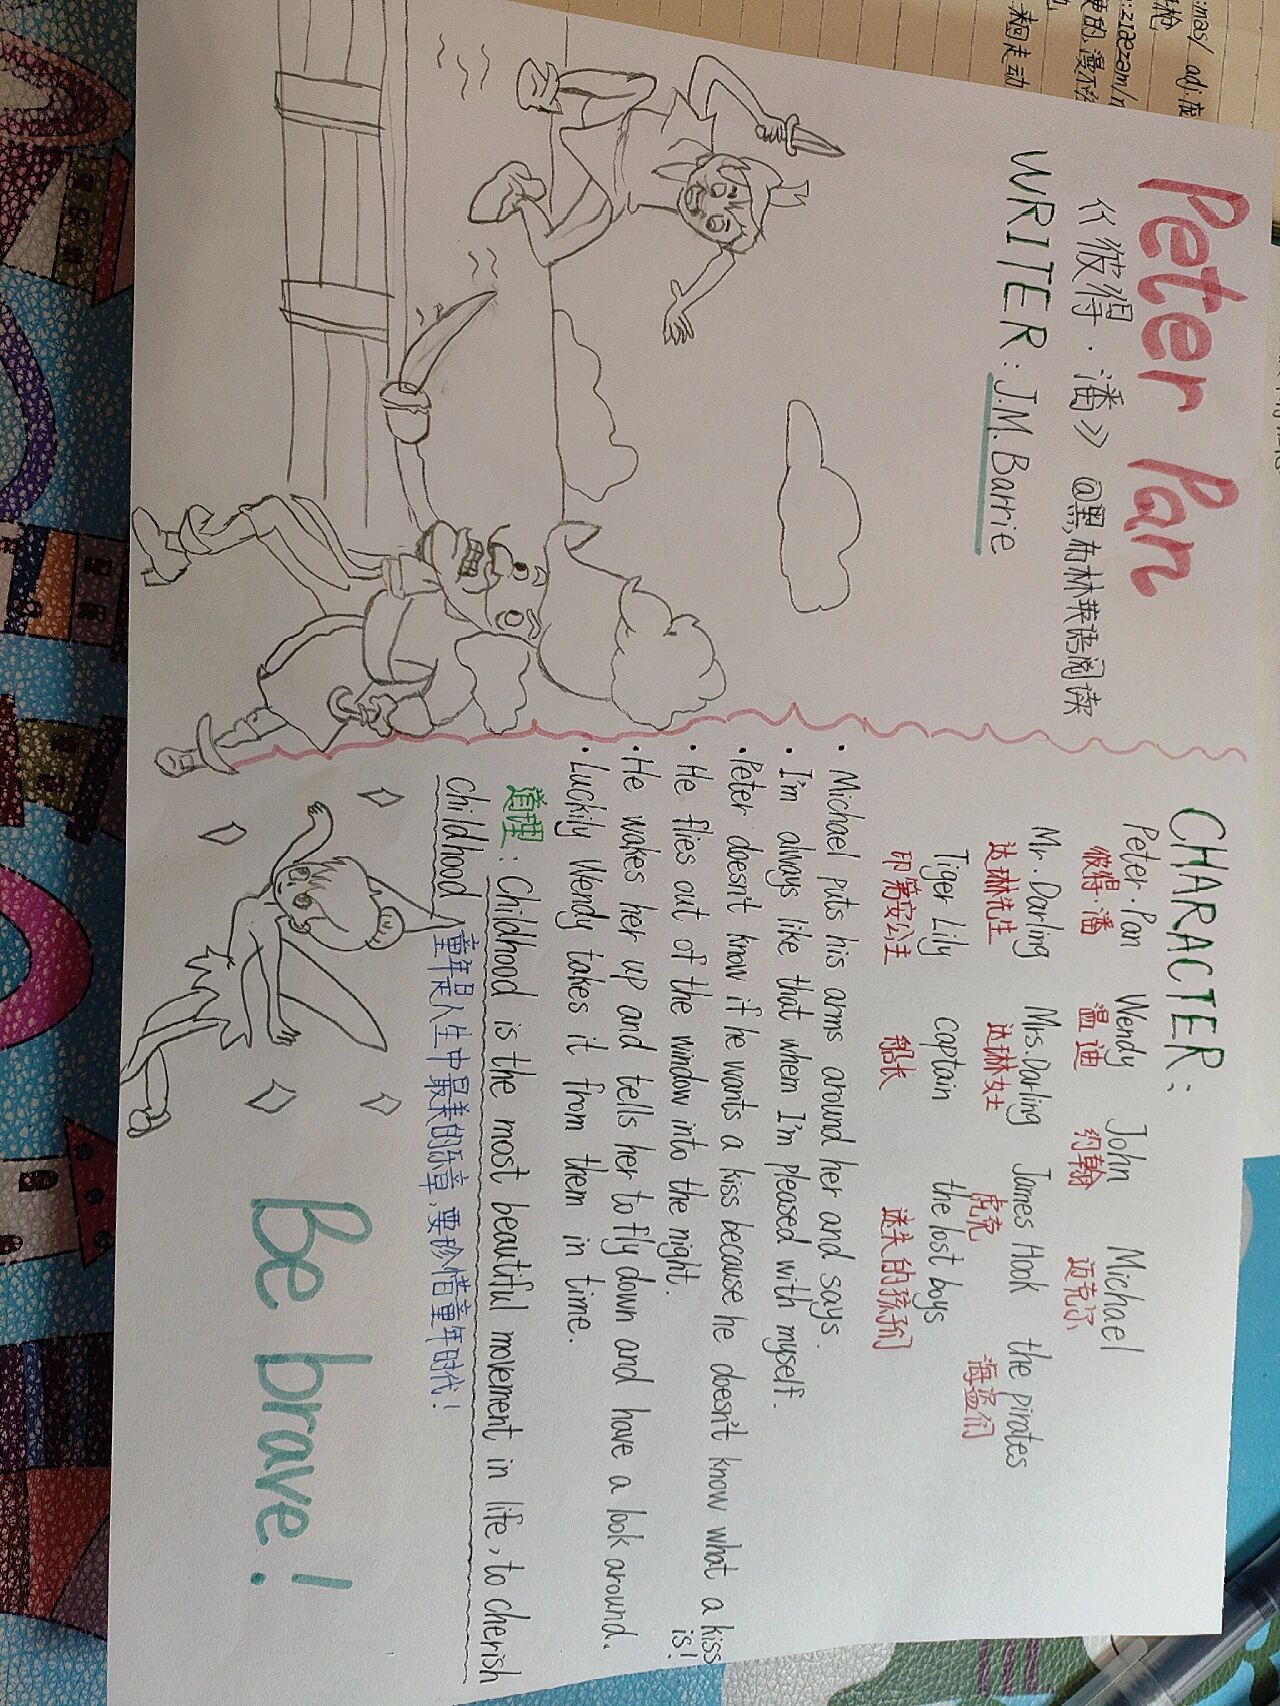 Peter Pan
《彼得·潘》 @黑布林英语阅读
WRITER: J.M.Barrie
CHARACTER:
Peter·Pan Wendy John Michael
彼得·潘 温迪 约翰 迈克尔
Mr.Darling Mrs.Darling James Hook the pirates
达琳先生 达琳女士 虎克 海盗们
Tiger Lily captain the lost boys
印第安公主 船长 迷失的孩子们
· Michael puts his arms around her and says.
· I'm always like that when I'm pleased with myself.
· Peter doesn't know if he wants a kiss because he doesn't know what a kiss
is!
· He flies out of the window into the night.
· He wakes her up and tells her to fly down and have a look around.
· Luckily Wendy takes it from them in time.
道理: Childhood is the most beautiful movement in life, to cherish
childhood 童年是人生中最美的乐章,要珍惜童年时代!
Be brave!